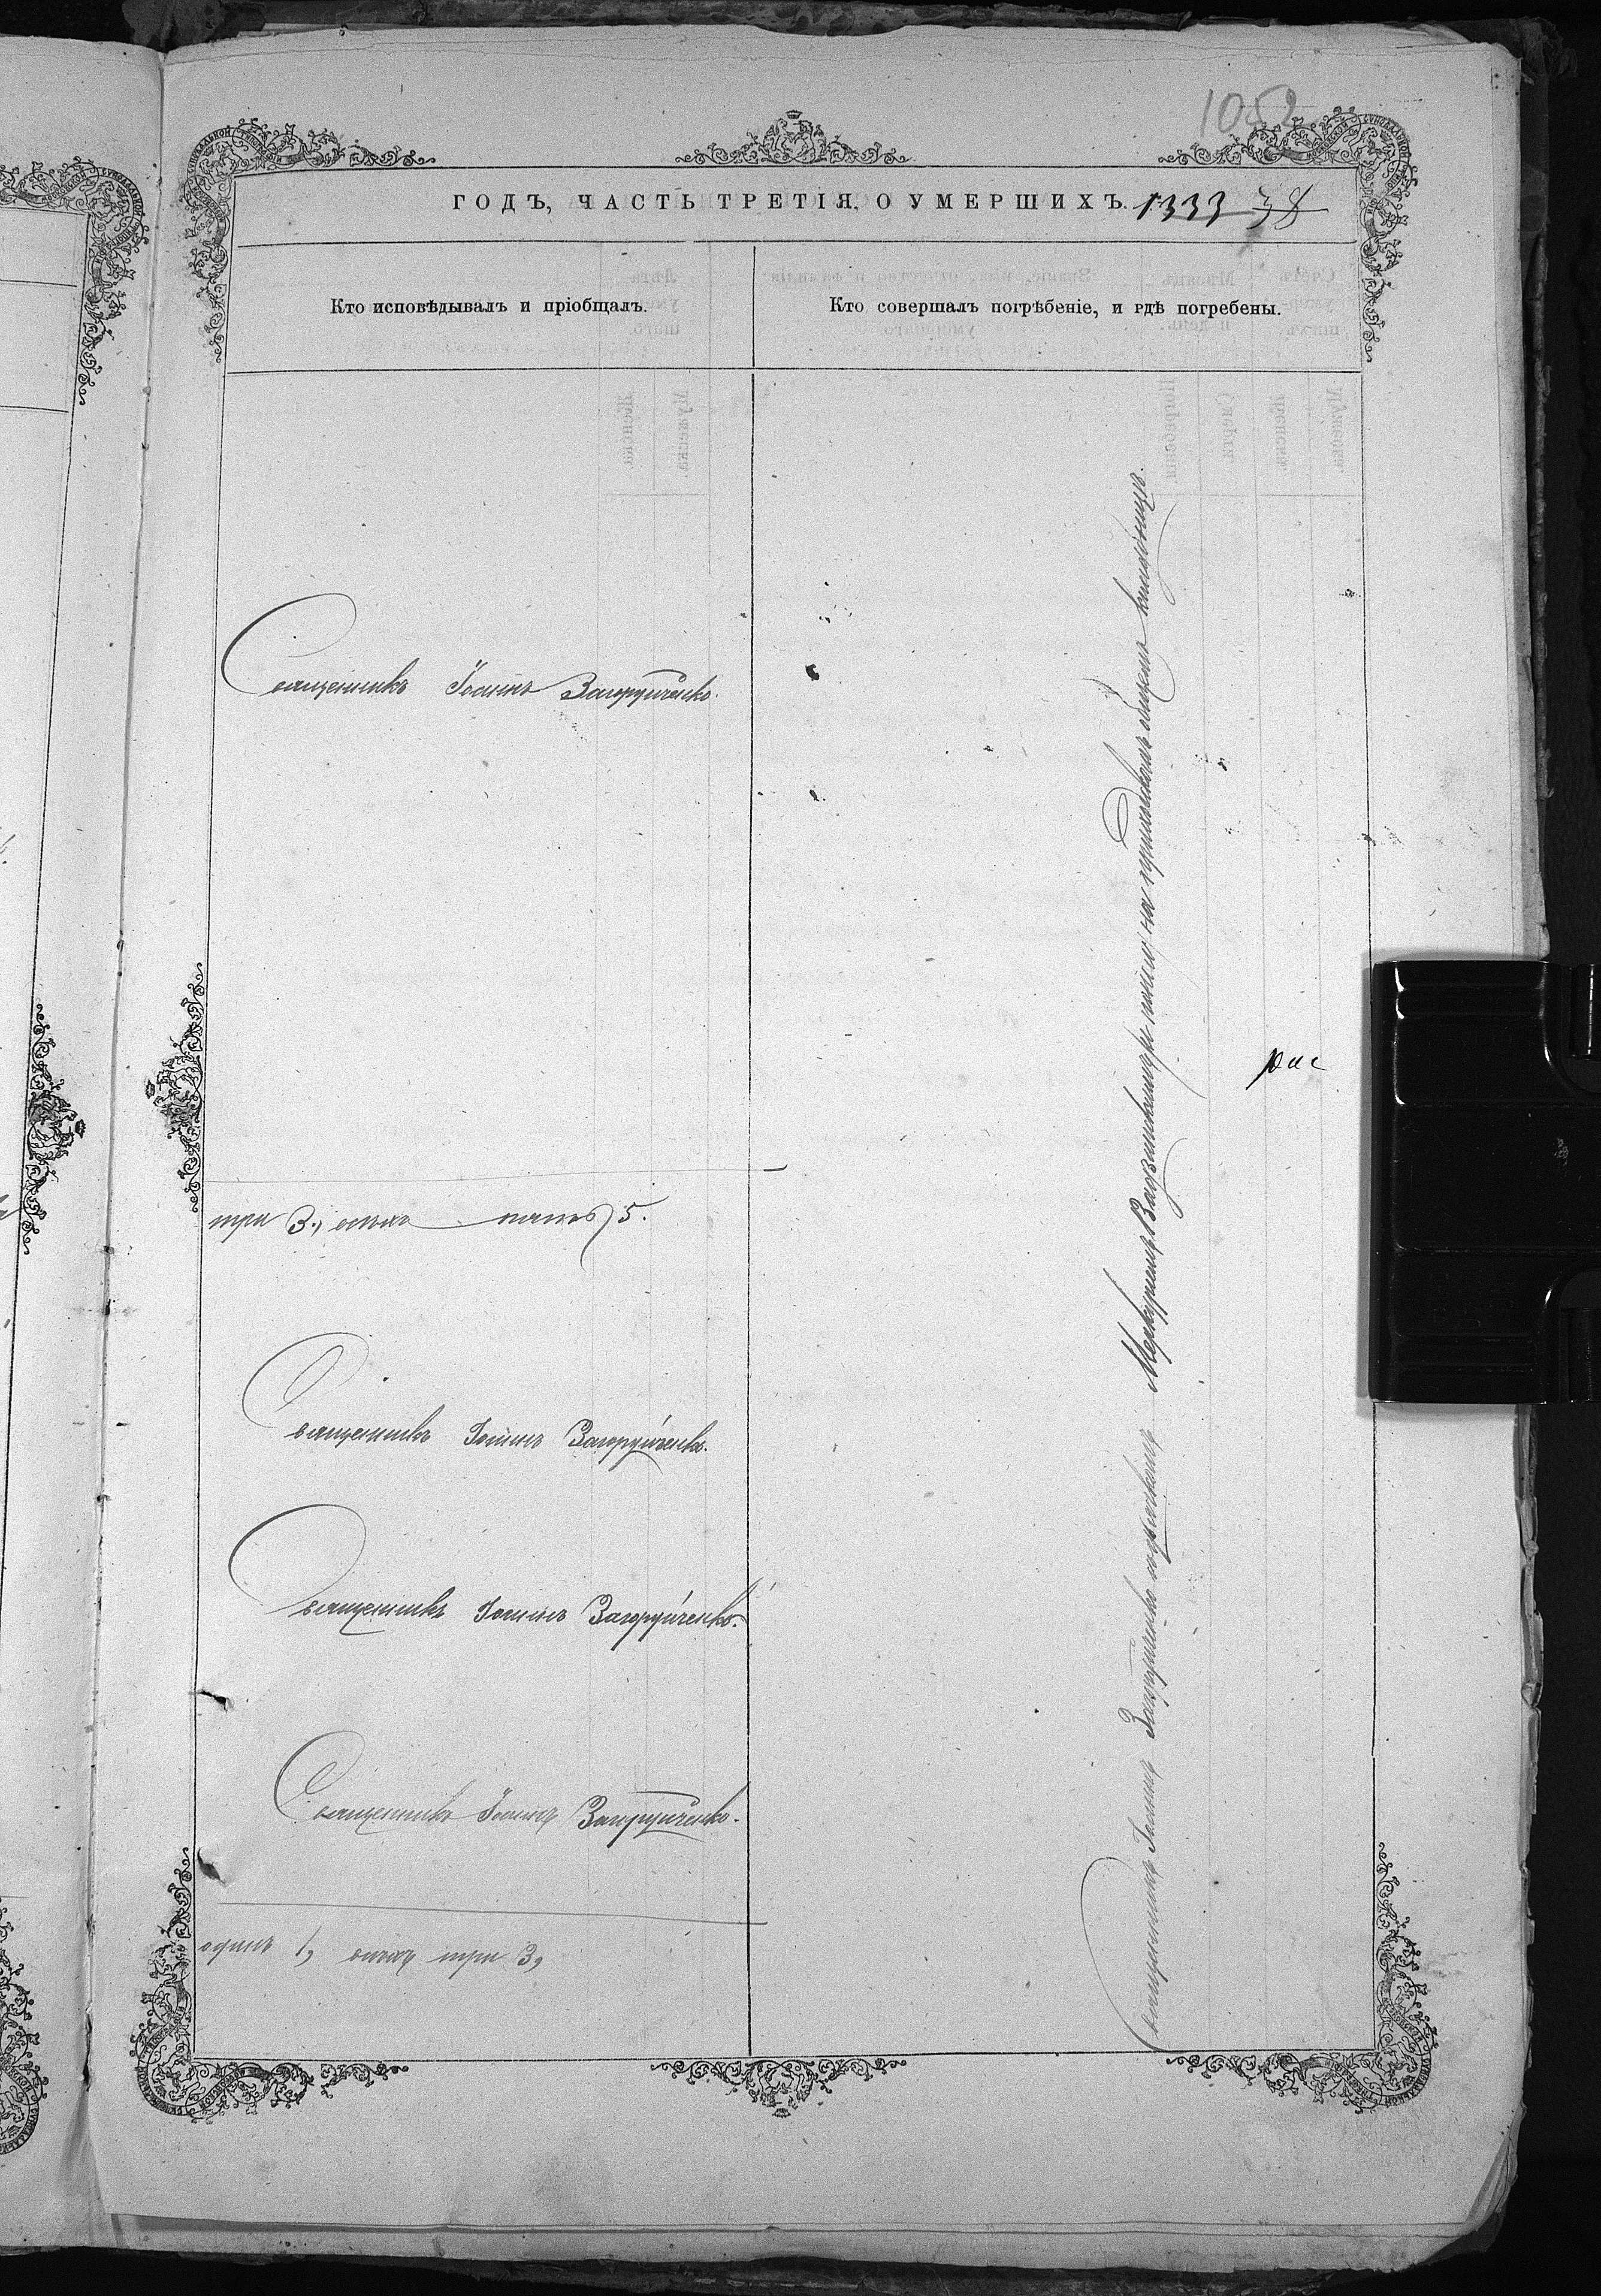 1052
ГОДЪ, ЧАСТЬ ТРЕТІЯ, О УМЕРШИХЪ. 1333 38
Кто исповѣдывалъ и пріобщалъ.
Кто совершалъ погрѣбеніе, и гдѣ погребены.
Священникъ Іоаннъ Загоруйченко.
три 3, всѣхъ пять 5.
Священникъ Іоаннъ Загоруйченко.
Священникъ Іоаннъ Загоруйченко.
Священникъ Іоаннъ Загоруйченко.
одинъ 1, всѣхъ три 3,
Священникъ Іоаннъ Загоруйченко съ псаломщикомъ Меркуріемъ на приходскомъ общемъ кладбищѣ.